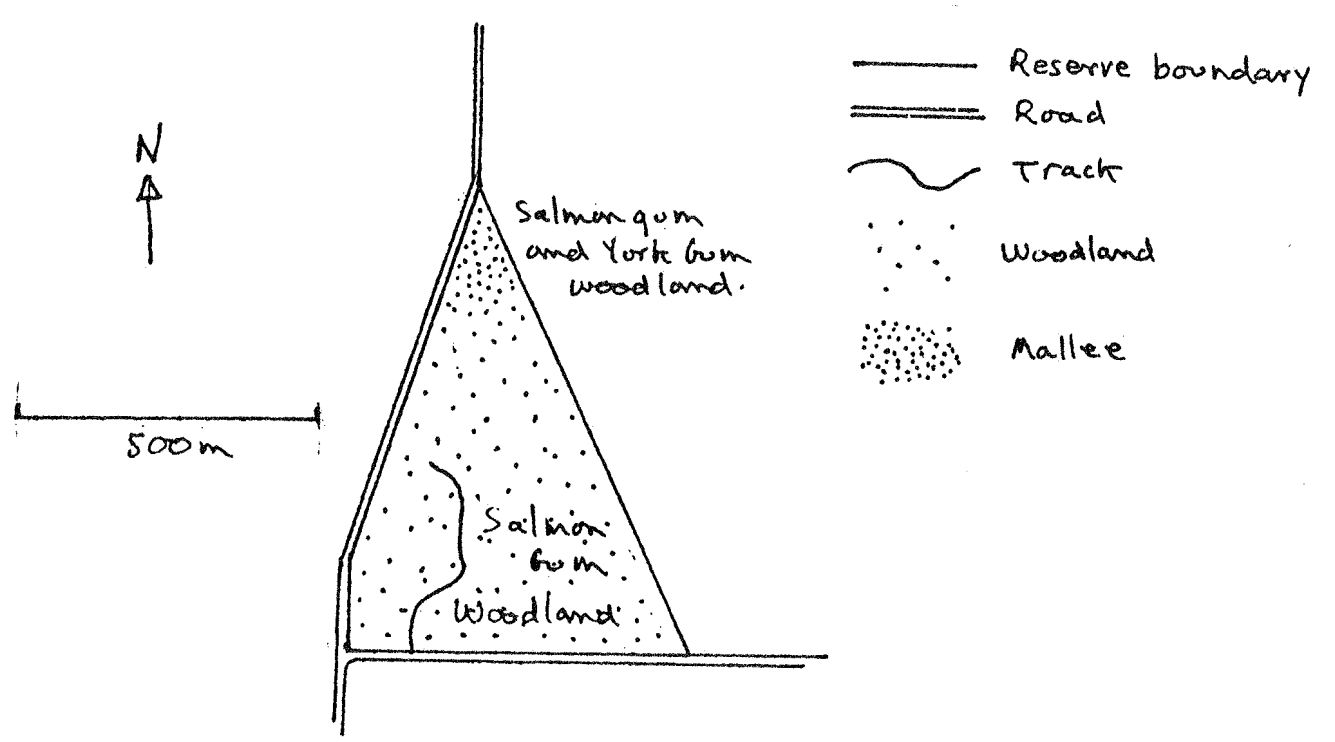 N
Salmon gum
and York Gum
woodland.
500m
Salmon
Gum
Woodland
Reserve boundary
Road
Track
Woodland
Mallee